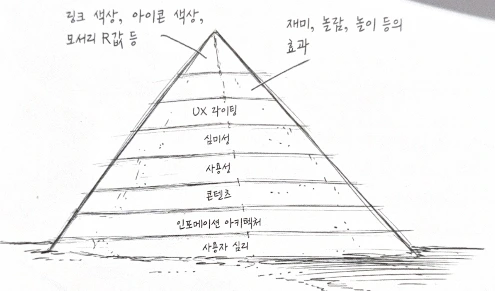 링크 색상, 아이콘 색상,
모서리 R값 등
재미, 놀람, 놀이 등의
효과
UX 라이팅
심미성
사용성
콘텐츠
인포메이션 아키텍처
사용자 심리